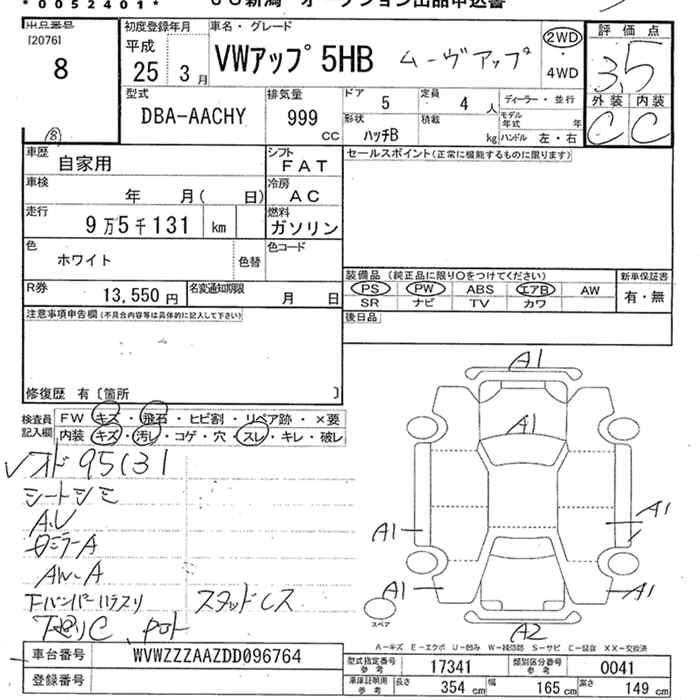 *0052401*
出品番号
[2076]
8
⑧
初度登録年月
平成
25 3月
車名・グレード
VWアップ 5HB ムーヴアップ
2WD
・
4WD
評価点
3.5
外装 内装
C C
型式
DBA-AACHY
排気量
999
CC
ドア 5
定員 4人
ディーラー・並行
形状 ハッチB
積載 kg
モデル年式 年
ハンドル 左・右
車歴
自家用
シフト
FAT
車検
年 月( 日)
冷房
AC
走行
9万5千131 km
燃料
ガソリン
色
ホワイト
色替
色コード
R券
13,550円
名変通知期限
月 日
セールスポイント(正常に機能するものに限ります)
装備品 (純正品に限り○をつけてください)
新車保証書
PS PW ABS エアB AW
SR ナビ TV カワ
有・無
後日品
注意事項申告欄(不具合内容等は具体的に記入して下さい)
修復歴 有〔箇所 〕
検査員
記入欄
FW キズ・飛石・ヒビ割・リペア跡・×要
内装 キズ・汚レ・コゲ・穴・スレ・キレ・破レ
95131
シートシミ
A.U
ミラーA
AW-A
下バンパーハラスリ スタッドレス
C
A1
A1
A1
A1
A1
A1
A2
スペア
A−キズ E−エクボ U−凹み W−補修跡 S−サビ C−腐食 XX−交換済
車台番号
WVWZZZAAZDD096764
登録番号
型式指定番号
参考
17341
類別区分番号
参考
0041
車庫証明用
参考
長さ 354 cm
幅 165 cm
高さ 149 cm